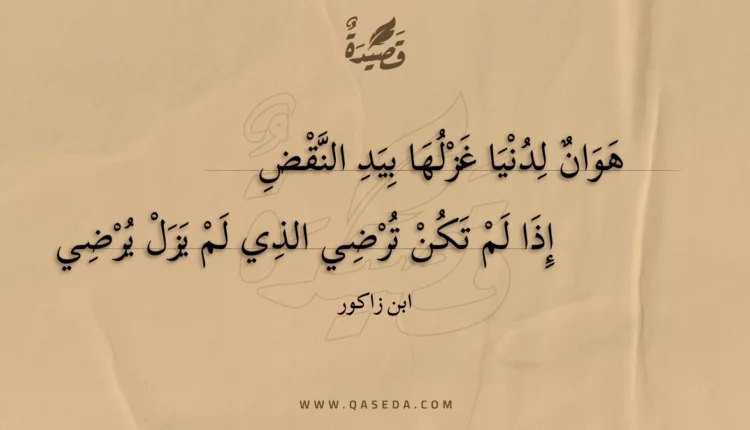 قَصِيدَةٌ
هَوَانٌ لِدُنْيَا غَزْلُهَا بِيَدِ النَّقْضِ
إِذَا لَمْ تَكُنْ تُرْضِي الذِي لَمْ يَزَلْ يُرْضِي
ابن زاكور
WWW.QASEDA.COM